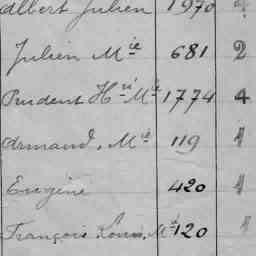 Albert Julien 1970
Julien Mie 681 2
Prudent Hri Mie 1774 4
Armand, Mie 119 1
Eugène 420 1
François Louis, Mie 120 1